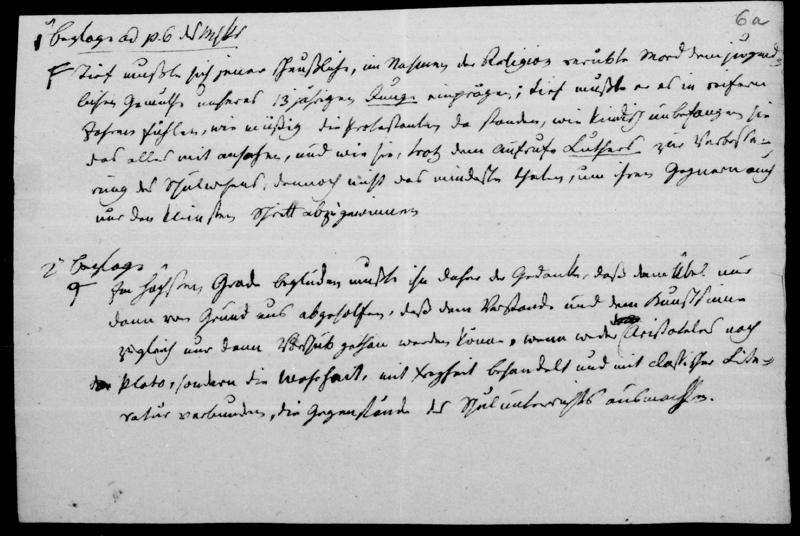 6a
1 Beylage ad p. 6 des Mskr
Tief mußte sich jener scheußliche, im Nahmen der Religion verübte Mord dem jugend-
lichen Gemüthe unseres 13 jährigen Jungs einprägen; tief mußte er es in reifern
Jahren fühlen, wie müßig die Protestanten da standen, wie kindisch unbefangen sie
das alles mit ansahen, und wie sie, trotz dem Aufrufe Luthers zur Verbesse-
rung des Schulwesens, dennoch nicht das mindeste thaten, um ihren Gegnern auch
nur den kleinsten Schritt abzugewinnen
2 Beylage
Im höchsten Grade beglücken mußte ihn daher der Gedanke, daß dem Übel nur
dann von Grund aus abgeholfen, daß dem Verstande und dem Kunstsinne
zugleich nur dann Vorschub gethan werden könne, wenn weder Aristoteles noch
Plato, sondern die Wahrheit, mit Freyheit behandelt und mit classischer Lite-
ratur verbunden, die Gegenstände des Schulunterrichts ausmachten.